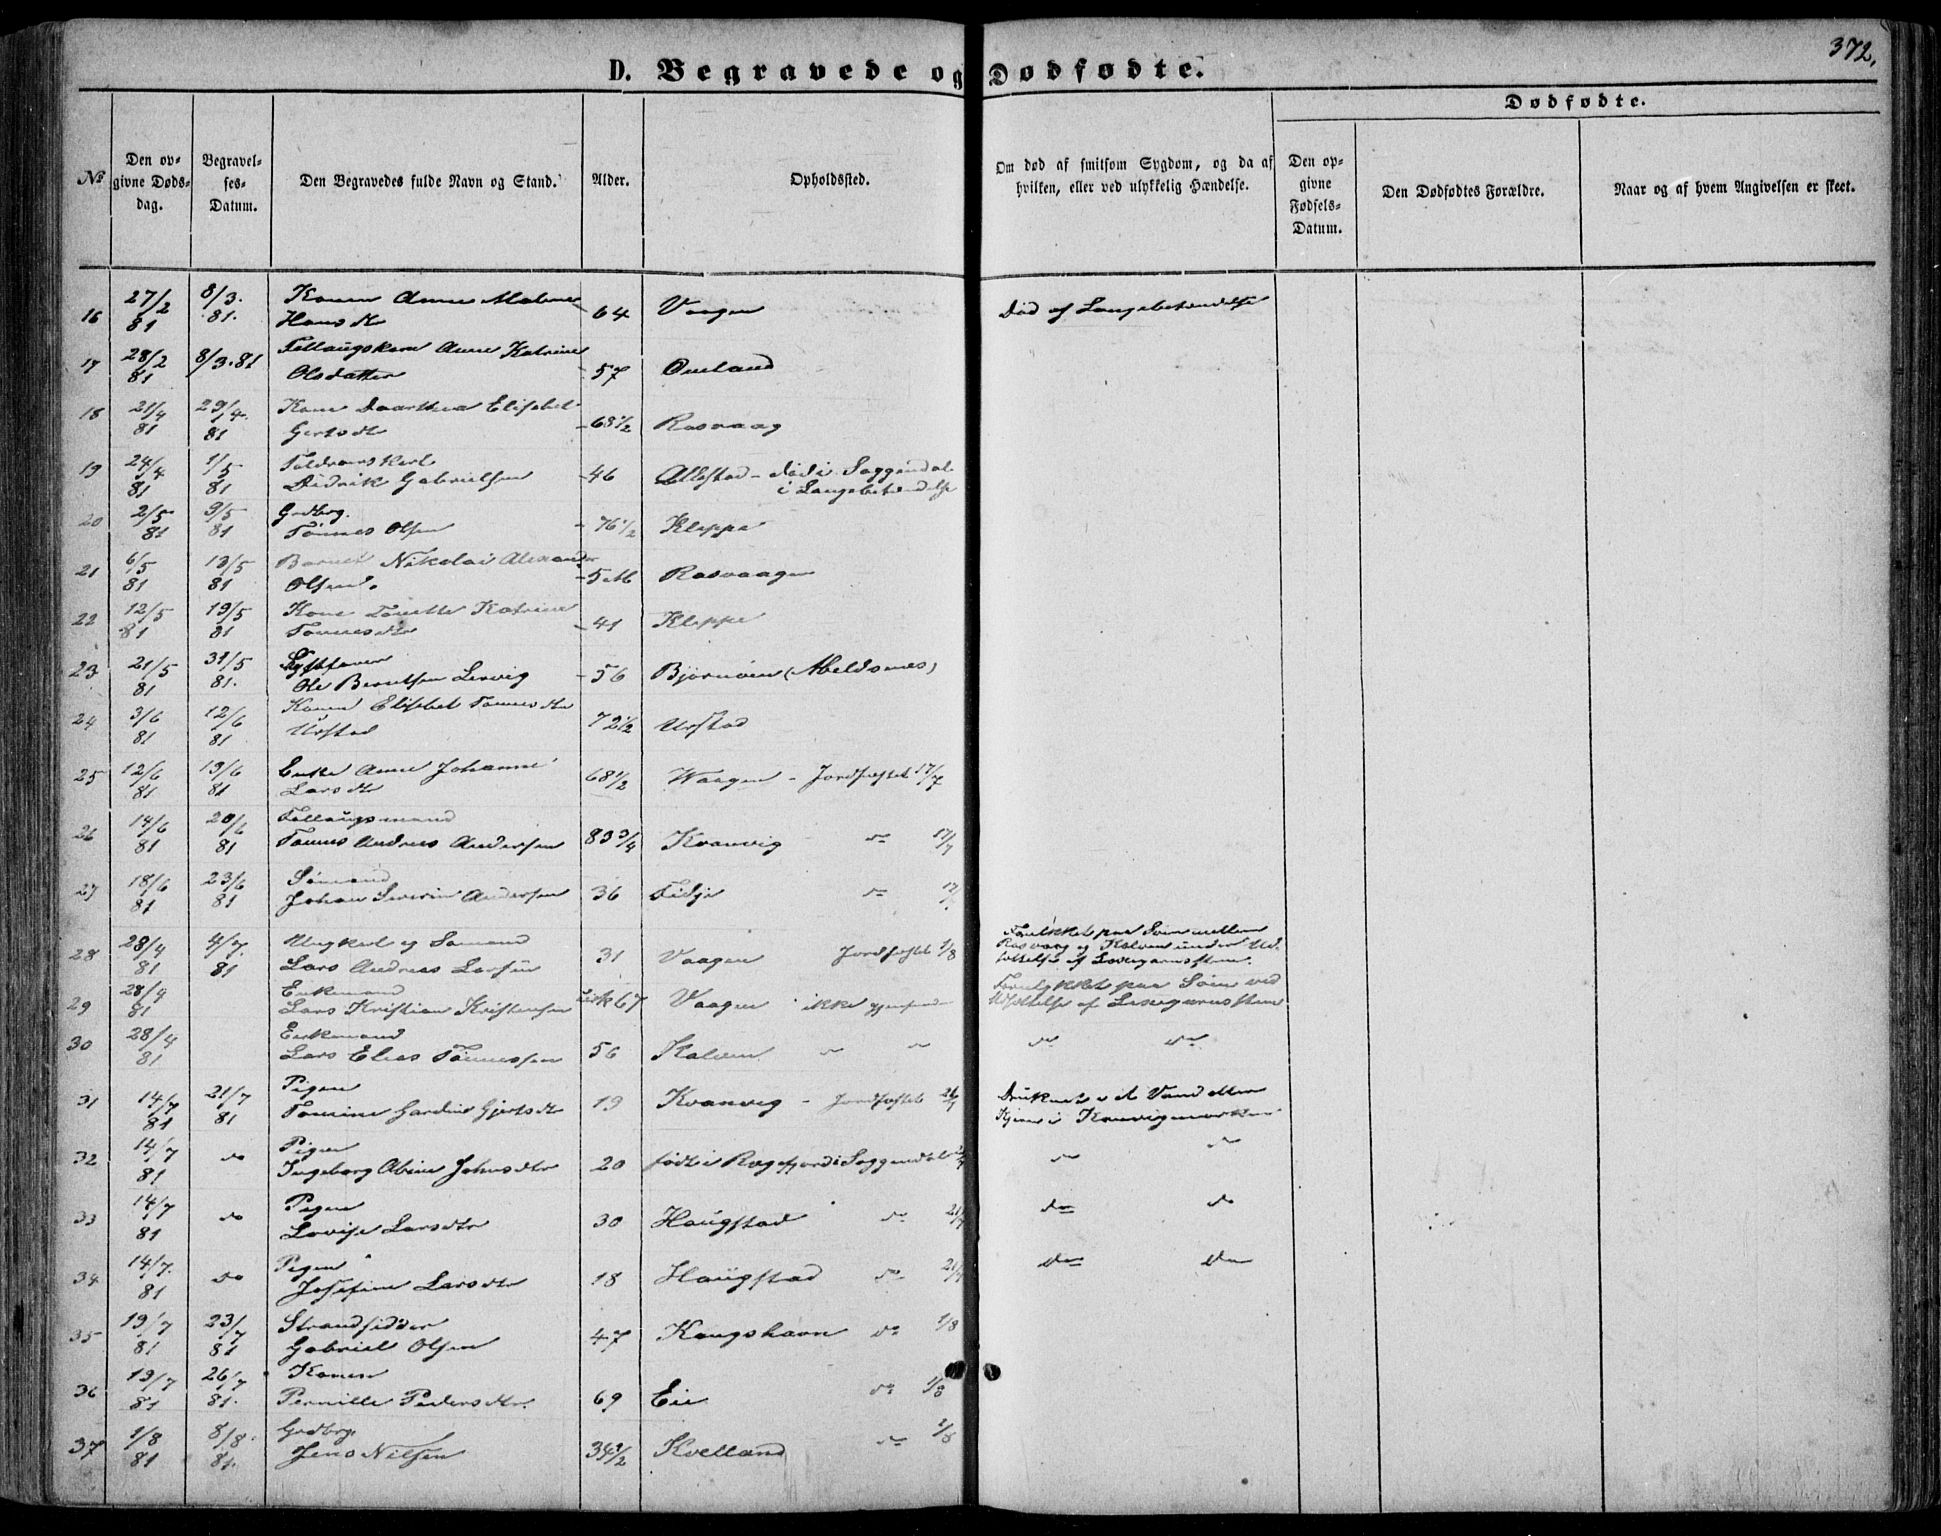 372.
D. Begravede og Dødfødte.
Dødfødte.
№
Den opgivne Dødsdag.
Begravelses-Datum.
Den Begravedes fulde Navn og Stand.
Alder.
Opholdssted.
Om død af smitsom Sygdom, og da af hvilken, eller ved ulykkelig Hændelse.
Den opgivne Fødsels-Datum.
Den Dødfødtes Forældre.
Naar og af hvem Angivelsen er skeet.
16 27/2 81 8/3. 81. Konen Anne Malene Hansdtr 64 Vaagen Død af Lungebetændelse
17 28/2 81 8/3.81 Fellaugskone Anne Katrine Olsdatter 57 Omland
18 21/4 81 29/4. 81 Kone Daarthea Elisabet Gertsdtr 63 1/2 Rasvaag
19 24/4 81 1/5 81 Didrik Gabrielsen 46 Ollestad - død i Soggendal i Lungebetændelse
20 2/5 81 9/5 81 Grdbrg. Tønnes Olsen 76 1/2 Kleppe
21 6/5 81 13/5 81 Barnet Nikolai Alexander Olsen. 5 M Rasvaagen
22 12/5 81 19/5 81 Kone Tonette Katrine Tønnesdtr 41 Kleppe
23 21/5 81 31/5 81. Ole Berntsen Lervig 56 Bjørnøen (Abeldsnes)
24 3/6 81 12/6 81 Konen Elisabet Tønnesdtr Urstad 72 1/2 Urstad
25 12/6 81 19/6 81 Enke Anne Johanne Larsdtr 68 1/2 Waagen - Jordfæstet 17/7
26 14/6 81 20/6 81 Fellaugsmand Tønnes Andreas Andersen 83 3/4 Kvanvig do 17/7
27 18/6 81 23/6 81 Sømand Johan Severin Andersen 36 Fidje do 17/
28 28/4 81 4/7. 81 Ungkarl og Sømand Lars Andreas Larsen 31 Vaagen Jordfæstet 1/8 Forulykket paa Søen mellem Rasvaag og Kalven under Udsættelse af
29 28/4 81 Enkemand Lars Kristian Kristensen 67 Vaagen ikke gjenfunden Forulykket paa Søen ved Udsættelse af
30 28/4 81 Enkemand Lars Elias Tønnessen 56 Kalven do do
31 14/7 81 21/7 81 Pigen Tomine Gjertsdtr 19 Kvanvig - Jordfæstet 21/7 Druknet i et Vand eller Kjern i Kvanvigmarken
32 14/7 81 do Pigen Ingeborg Abine Johnsdtr 20 født i Rægefjord i Soggendal do do
33 14/7 81 do Pigen Lovise Larsdtr 30 Haugstad do 21/7 do do
34 14/7. 81 do Pigen Josefine Larsdtr 18 Haugstad do 21/7 do do
35 19/7 81 23/7 81 Strandsidder Gabriel Olsen 47 Kongshavn do 1/8
36 19/7 81 26/7 81. Konen Pernille Pedersdtr. 69 Eie do 1/8
37 1/8 81 8/8. 81. Grdbrg. Jens Nilsen 34 1/2 Kvelland do 1/8